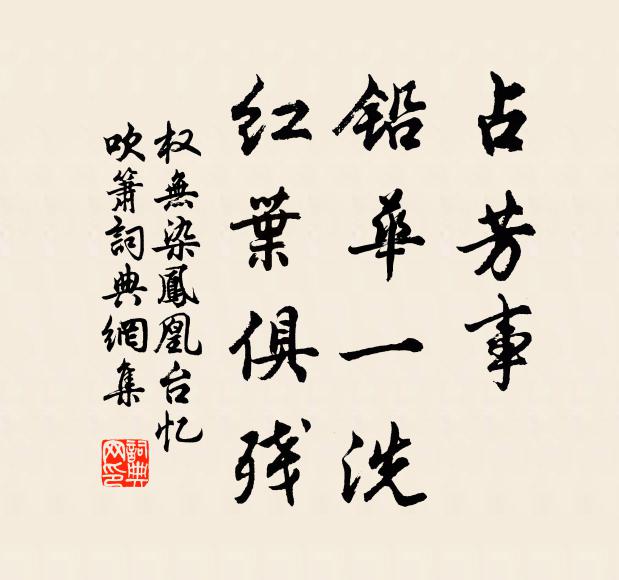 占芳事
铅华一洗
红叶俱残
权無染鳳凰台忆
吹箫詞典網集
詞典
网印